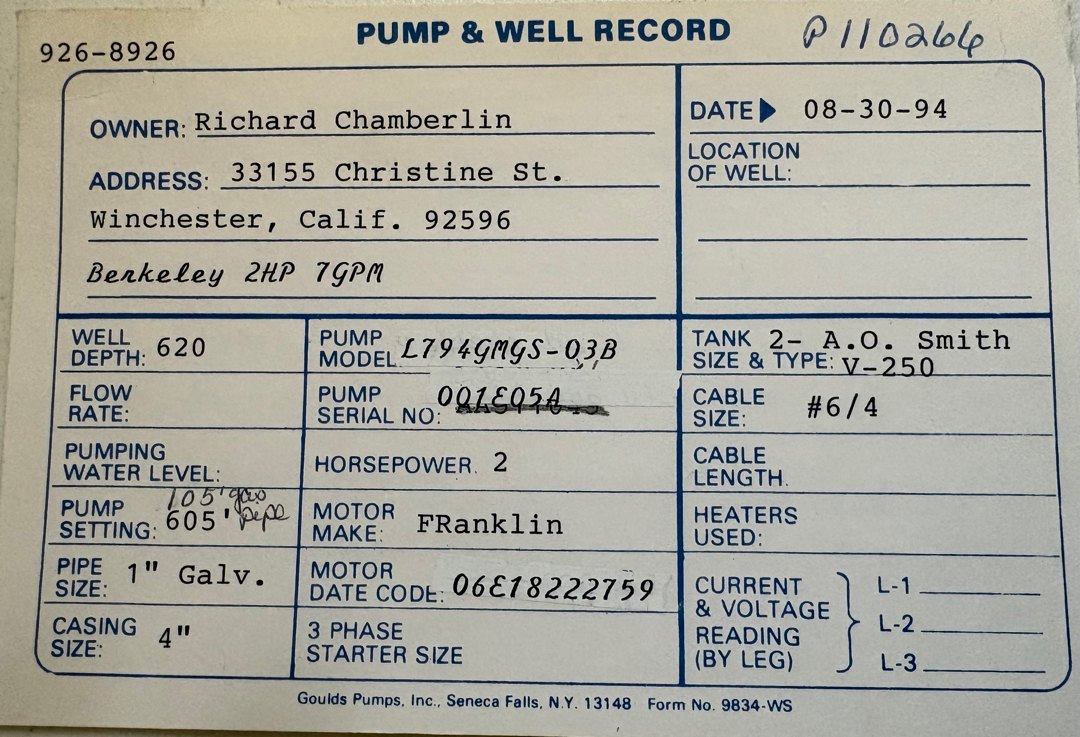 PUMP & WELL RECORD
P110266
926-8926
OWNER: Richard Chamberlin
ADDRESS: 33155 Christine St.
Winchester, Calif. 92596
Berkeley 2HP 7GPM
DATE▶ 08-30-94
LOCATION
OF WELL:
WELL
DEPTH: 620
FLOW
RATE:
PUMPING
WATER LEVEL:
105' galv
PUMP
SETTING: 605' pipe
PIPE
SIZE: 1" Galv.
CASING
SIZE: 4"
PUMP
MODEL L794GMGS-03B
PUMP
SERIAL NO: 001E05A
HORSEPOWER. 2
MOTOR
MAKE: FRanklin
MOTOR
DATE CODE: 06E18222759
3 PHASE
STARTER SIZE
TANK 2- A.O. Smith
SIZE & TYPE: V-250
CABLE
SIZE: #6/4
CABLE
LENGTH.
HEATERS
USED:
CURRENT
& VOLTAGE
READING
(BY LEG)
L-1
L-2
L-3
Goulds Pumps, Inc., Seneca Falls, N.Y. 13148 Form No. 9834-WS